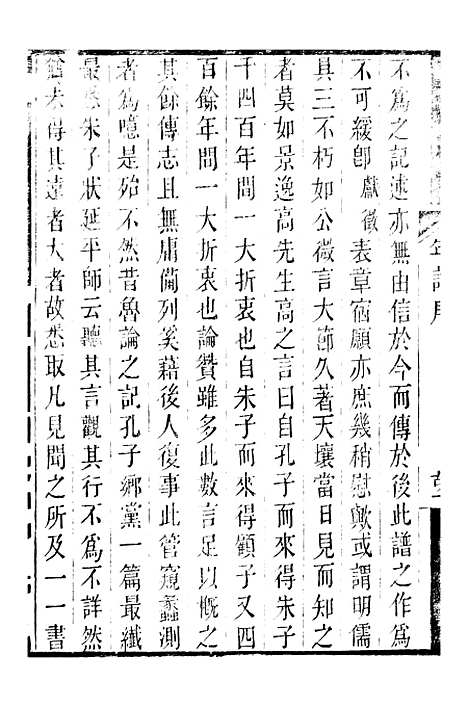 年譜序
不為之記述亦無由信於今而傳於後此譜之作為
不可緩卽獻徵表章宿願亦庶幾稍慰歟或謂明儒
具三不朽如公微言大節久著天壤當日見而知之
者莫如景逸高先生高之言曰自孔子而來得朱子
千四百年間一大折衷也自朱子而來得顧子又四
百餘年間一大折衷也論贊雖多此數言足以概之
其餘傳志且無庸備列奚藉後人復事此管窺蠡測
者為噫是殆不然昔魯論之記孔子鄉黨一篇最纖
最悉朱子狀延平師云聽其言觀其行不為不詳然
猶未得其遠者大者故悉取凡見聞之所及一一書